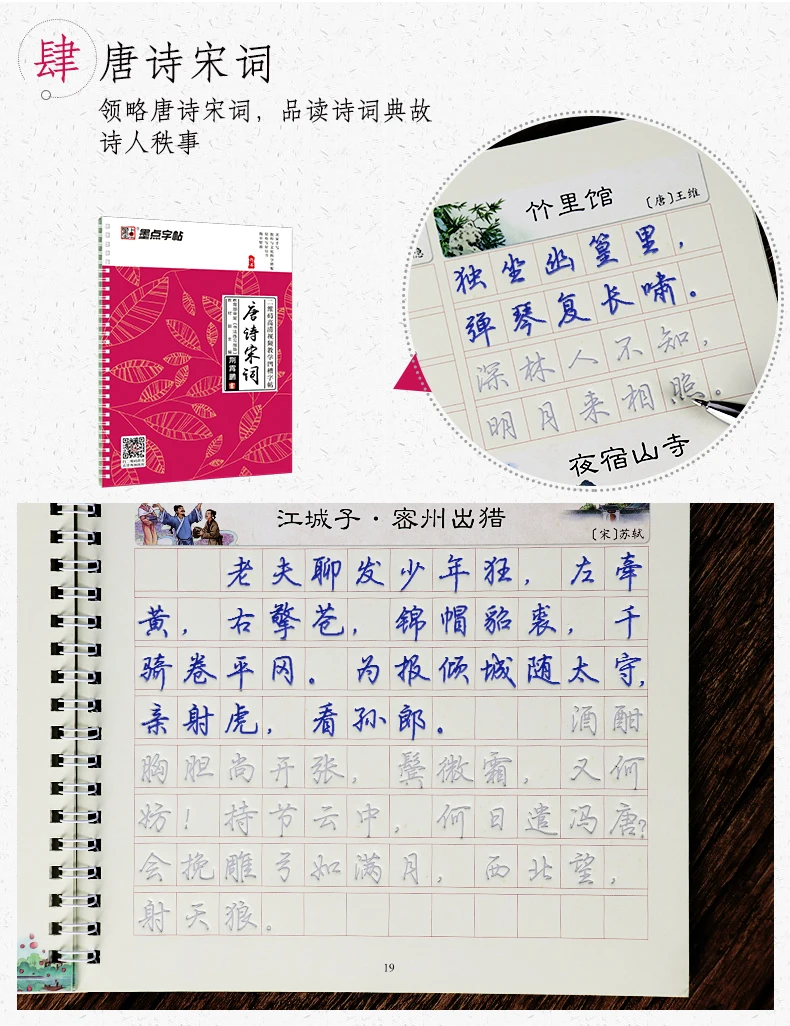 肆
唐诗宋词
领略唐诗宋词，品读诗词典故
诗人秩事
墨点字帖
二维码高清视频教学凹槽字帖
唐诗宋词
荆霄鹏
竹里馆
〔唐〕王维
独坐幽篁里，
弹琴复长啸。
深林人不知，
明月来相照。
夜宿山寺
江城子·密州出猎
〔宋〕苏轼
老夫聊发少年狂，左牵
黄，右擎苍，锦帽貂裘，千
骑卷平冈。为报倾城随太守，
亲射虎，看孙郎。酒酣
胸胆尚开张，鬓微霜，又何
妨！持节云中，何日遣冯唐？
会挽雕弓如满月，西北望，
射天狼。
19